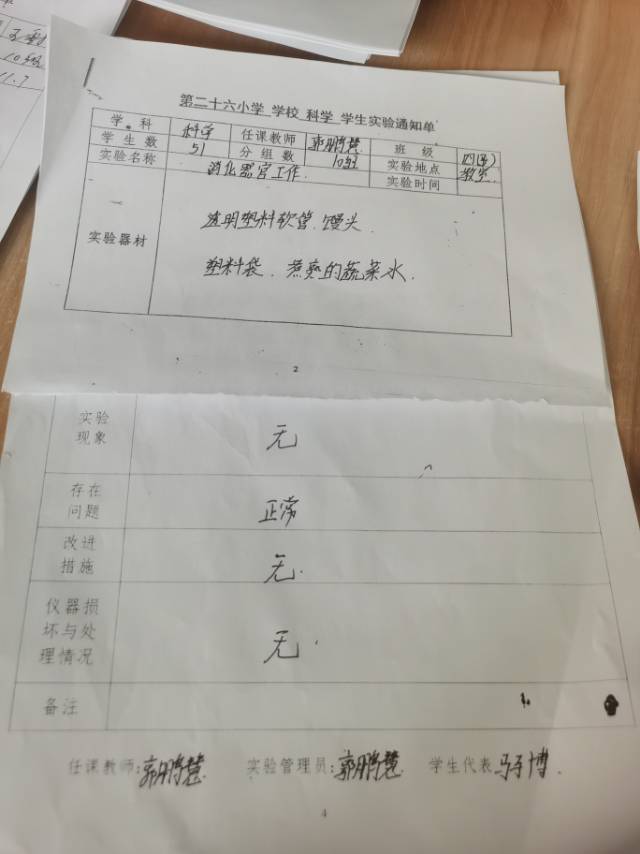 11.7
第二十六小学 学校 科学 学生实验通知单
学 科 科学 任课教师 郭鹏慧 班 级
学 生 数 51 分 组 数 10组 实验地点 教室
实验名称 消化器官工作. 实验时间
实验器材
透明塑料软管.馒头
塑料袋、煮熟的蔬菜水.
2
实验
现象
无
存在
问题
正常
改进
措施
无.
仪器损
坏与处
理情况
无.
备注
任课教师:郭鹏慧 实验管理员:郭鹏慧 学生代表 马子博.
4